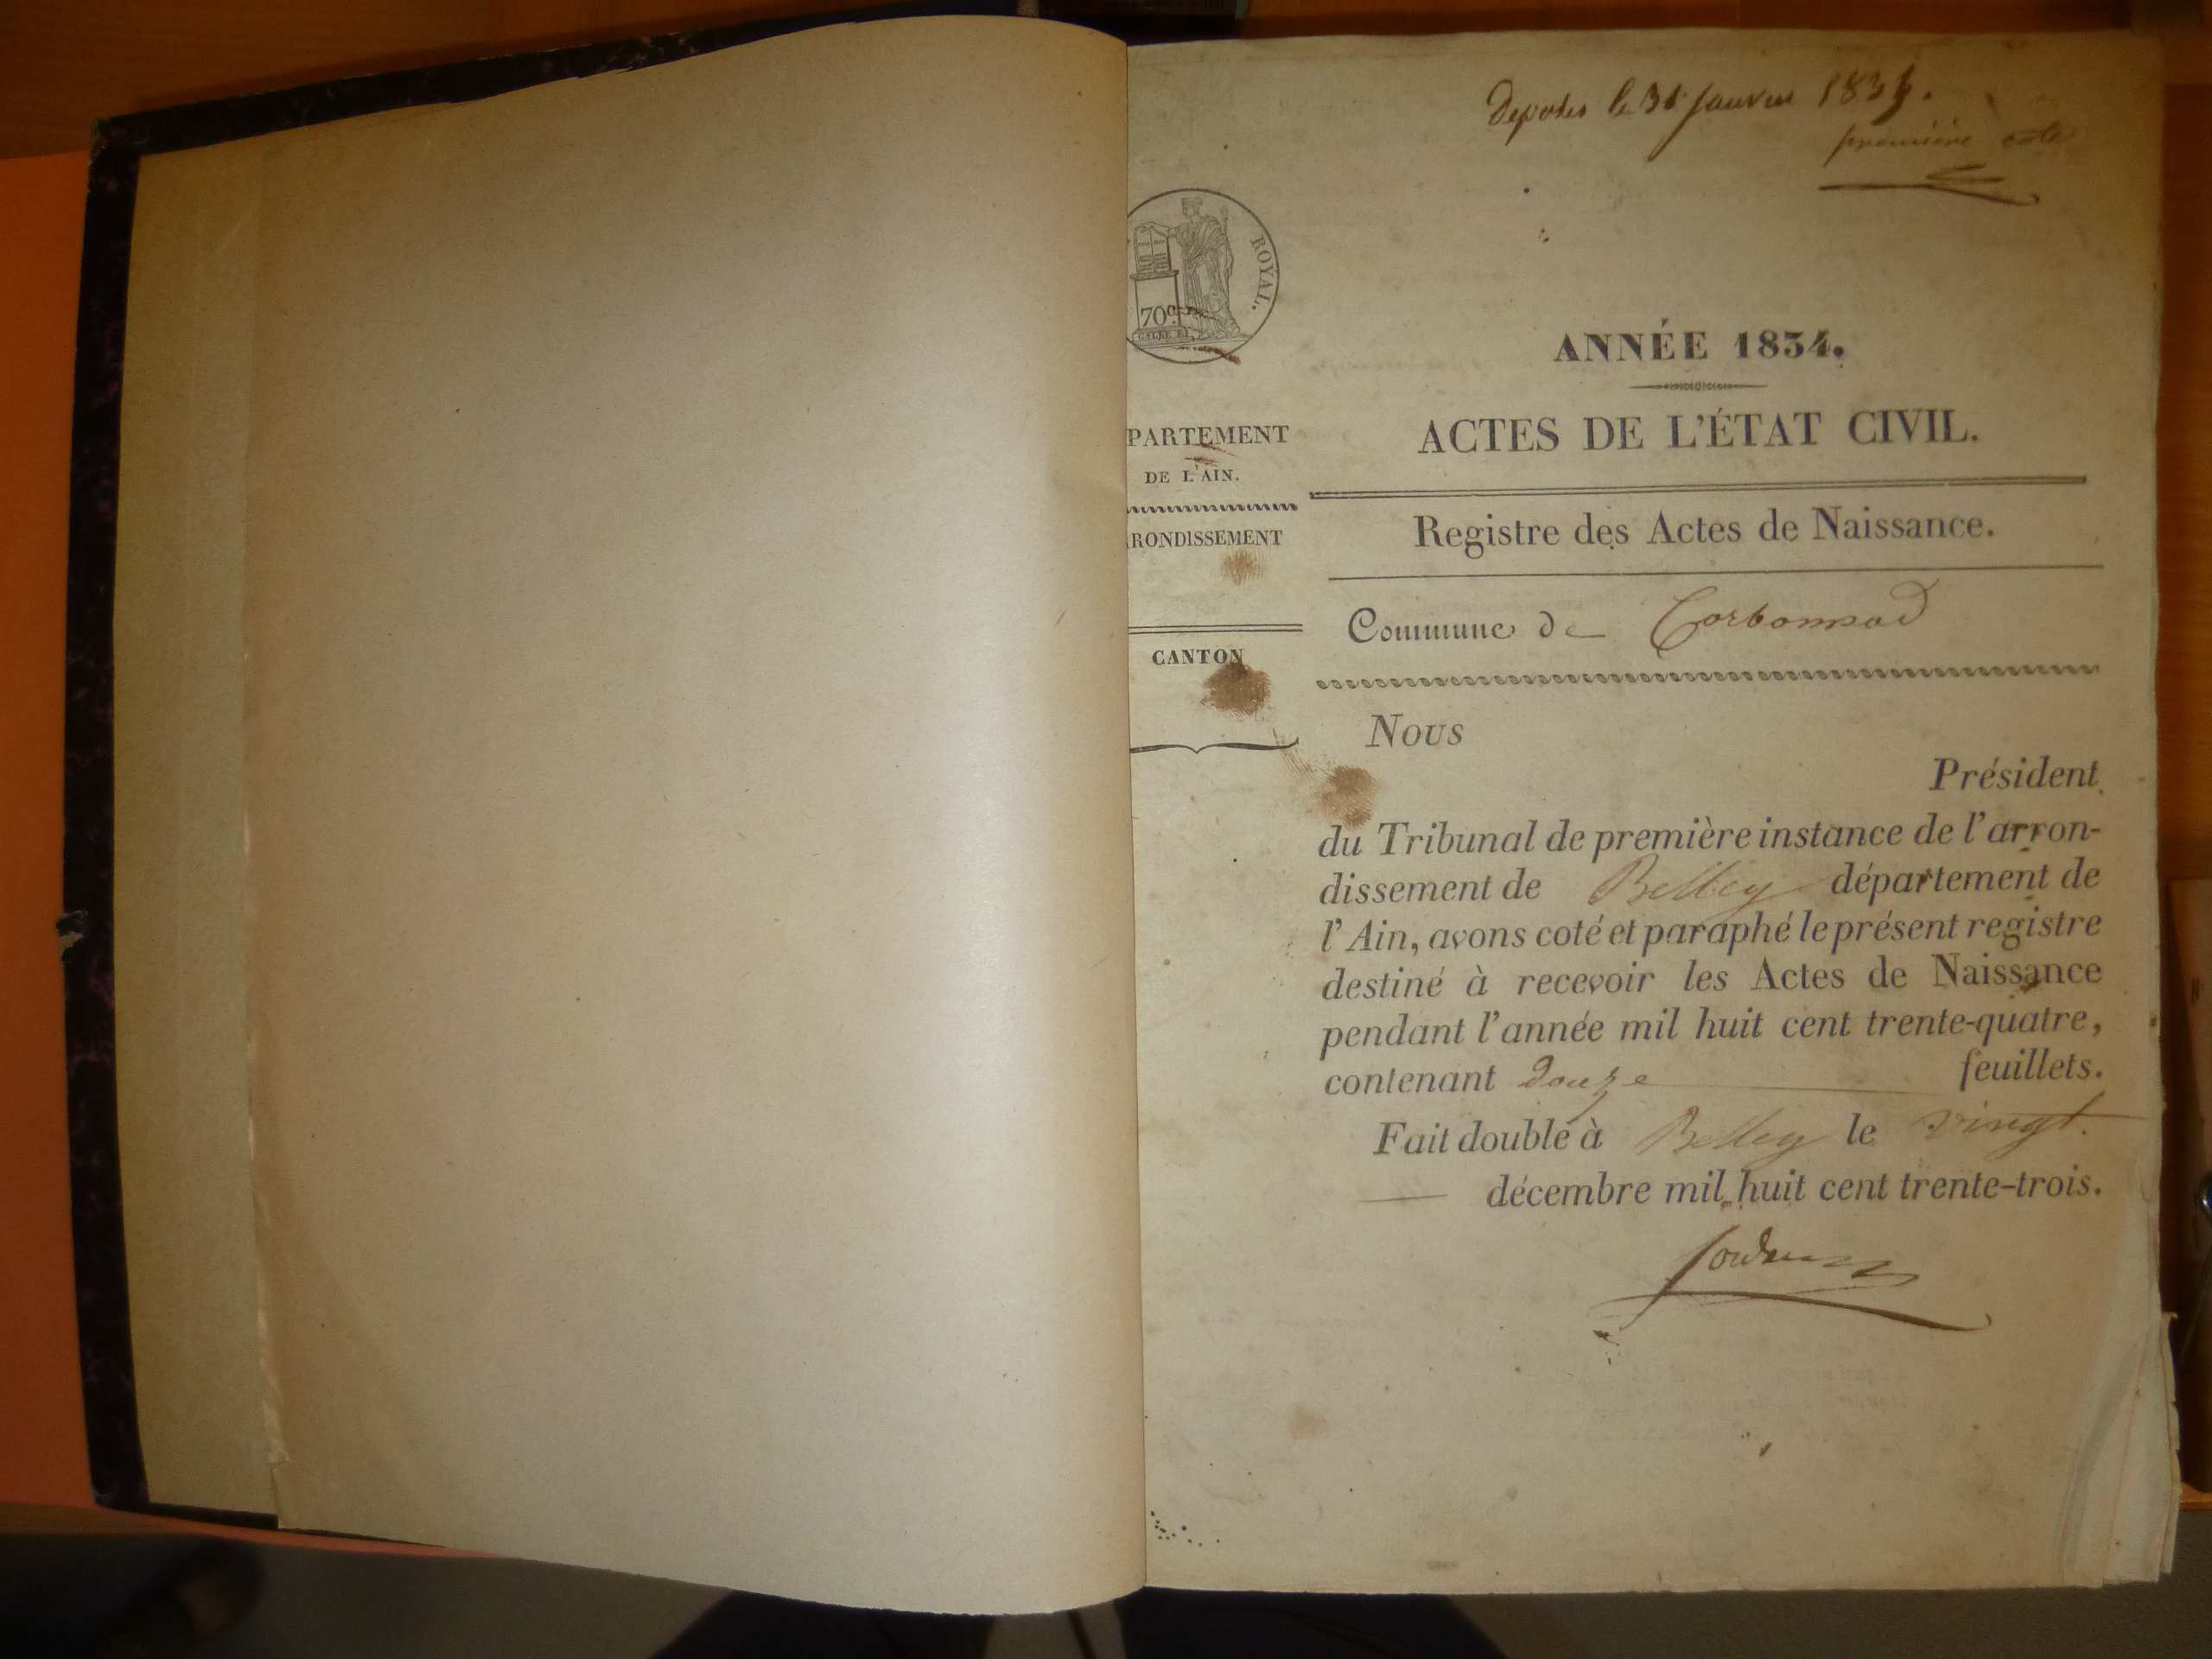 Deposées le 31 Janvier 1835.
première cote
ROYAL.
70c
ANNÉE 1834.
ACTES DE L'ÉTAT CIVIL.
PARTEMENT
DE L'AIN.
RONDISSEMENT
CANTON
Registre des Actes de Naissance.
Commune de Corbonod
Nous
Président
du Tribunal de première instance de l'arron-
dissement de Belley département de
l'Ain, avons coté et paraphé le présent registre
destiné à recevoir les Actes de Naissance
pendant l'année mil huit cent trente-quatre,
contenant douze feuillets.
Fait double à Belley le vingt
décembre mil huit cent trente-trois.